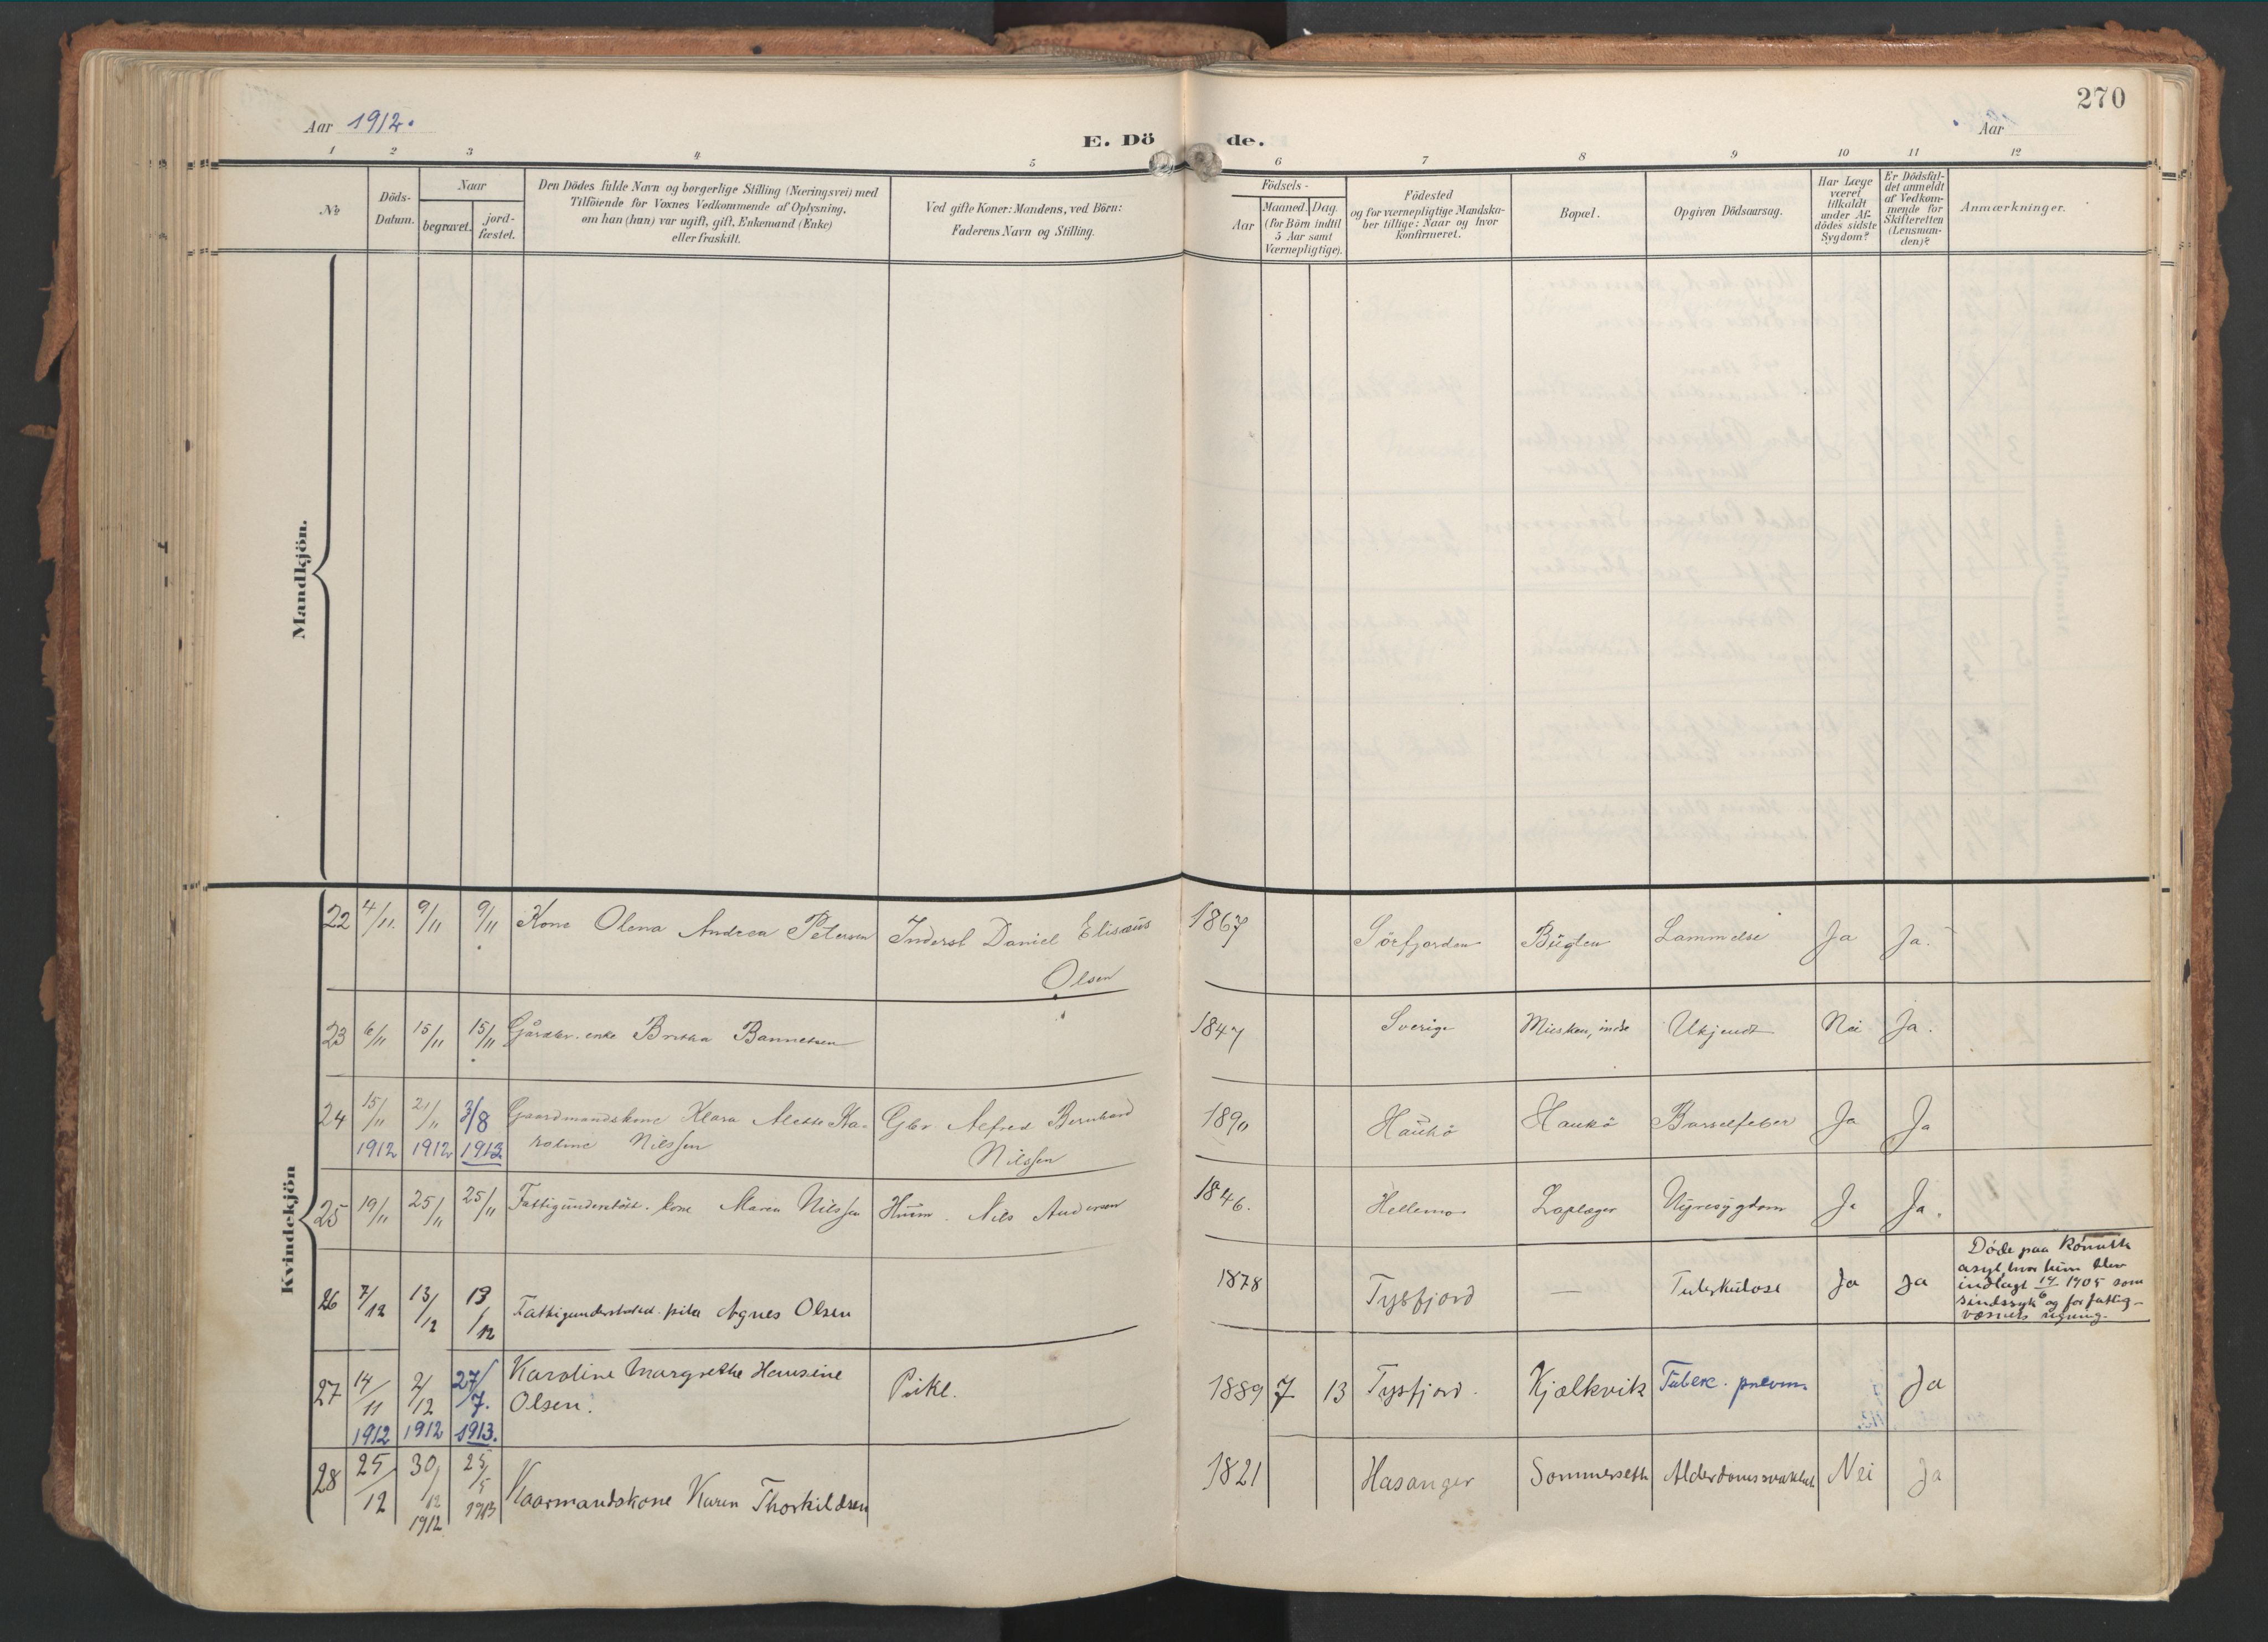 270
Aar 1912.
E. Dö de.
Aar
1 2 3 4 5 6 7 8 9 10 11 12
No
Döds-
Datum.
Naar
begravet.
jord-
fæstet.
Den Dödes fulde Navn og borgerlige Stilling (Næringsvei) med
Tilföiende for Voxnes Vedkommende af Oplysning,
om han (hun) var ugift, gift, Enkemand (Enke)
eller fraskilt.
Ved gifte Koner: Mandens, ved Börn:
Faderens Navn og Stilling.
Födsels-
Aar
Maaned. Dag.
(for Börn indtil
5 Aar samt
Værnepligtige).
Födested
og for værnepligtige Mandska-
ber tillige: Naar og hvor
konfirmeret.
Bopæl.
Opgiven Dödsaarsag.
Har Læge
været
tilkaldt
under Af-
dödes sidste
Sygdom?
Er Dödsfal-
det anmeldt
af Vedkom-
mende for
Skifteretten
(Lensman-
den)?
Anmærkninger.
Mandkjön.
Kvindekjön
22 4/11. 9/11 9/11 Kone Olena Andrea Petersen Inderst Daniel Elisæus 1867 Sörfjorden Bugten Lammelse Ja Ja.
Olsen
23 6/11 15/11 15/11 Gårdbr. enke Britha Bannetsen 1847 Sverige Musken, indre Ukjendt Nei Ja.
24 15/11 21/11 3/8 Gaardmandskone Klara Alette Ka- Gbr. Alfred Bernhard 1890 Haukö Haukö Barselfeber Ja Ja
1912 1912 1913 roline Nilssen Nilssen
25 19/11 25/11 25/11 Fattigunderstött. kone Maren Nilssen Husm. Nils Andersen 1846. Hellemo Laplæger Nyresygdom Ja Ja.
26 7/12 13/12 13/12 Fattigunderstöttet pike Agnes Olsen 1878 Tysfjord — Tuberkulose Ja Ja
Döde paa Rönvik
asyl, hvor hun blev
indlagt 14/6 1905 som
sindssyk og for fattig-
væsnets regning.
27 14/11 2/12 27/7. Karoline Margrethe Hansine Pike. 1889 7 13 Tysfjord. Kjælkvik Tuberk. pneum. Ja
1912 1912 1913. Olsen.
28 25/12 30/12 25/5 Kaarmandskone Karen Thorkildsen 1821 Hasanger Sommerseth Alderdomssvakhet Nei Ja
1912 1913